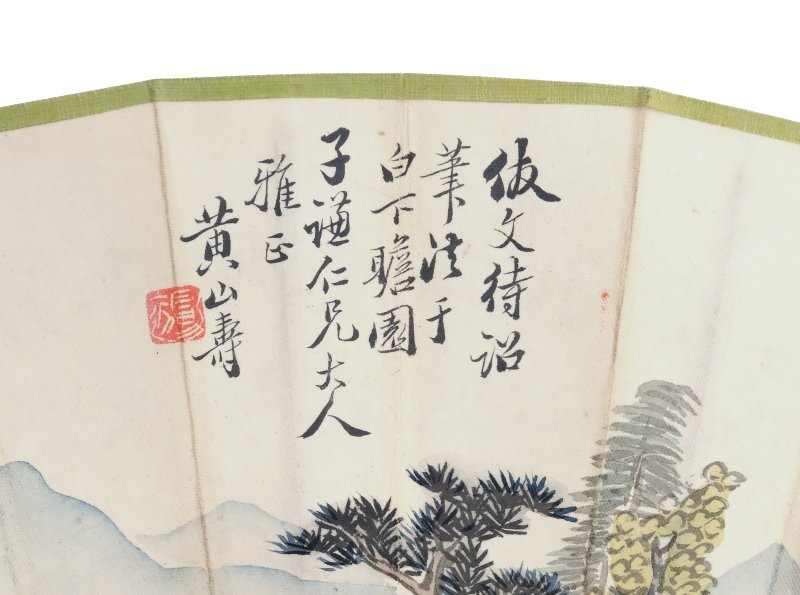 倣文待詔
筆法于
白下瞻園
子謙仁兄大人
雅正
黄山壽